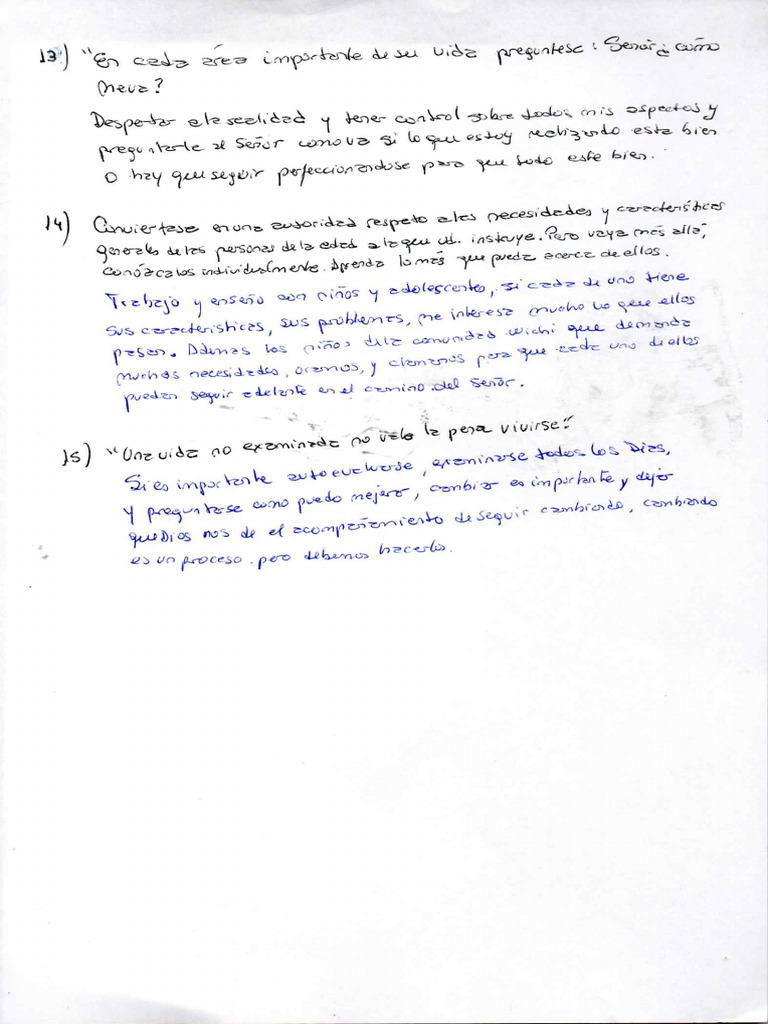 13) "En cada área importante de su vida preguntese: Señor ¿ como
me va?
Despertar a la realidad y tener control sobre todos mis aspectos y
preguntarle al Señor como va si lo que estoy realizando esta bien
O hay que seguir perfeccionandose para que todo este bien.
14) Conviertase en una autoridad respeto a las necesidades y características
generales de las personas de la edad a la que ud. instruye. Pero vaya más allá;
conózcalos individualmente. Aprenda lo más que pueda acerca de ellos.
Trabajo y enseño con niños y adolescentes, si cada de uno tiene
sus caracteristicas, sus problemas, me interesa mucho lo que ellos
pasan. Ademas los niños de la comunidad wichi que demanda
muchas necesidades, oramos, y clamamos para que cada uno de ellos
puedan seguir adelante en el camino del Señor.
15) "Una vida no examinada no vale la pena vivirse."
Si es importante autoevaluarse, examinarse todos los Dias,
y preguntarse como puedo mejorar, cambiar es importante y dejar
que Dios nos de el acompañamiento de seguir cambiando, cambiando
es un proceso. pero debemos hacerlo.